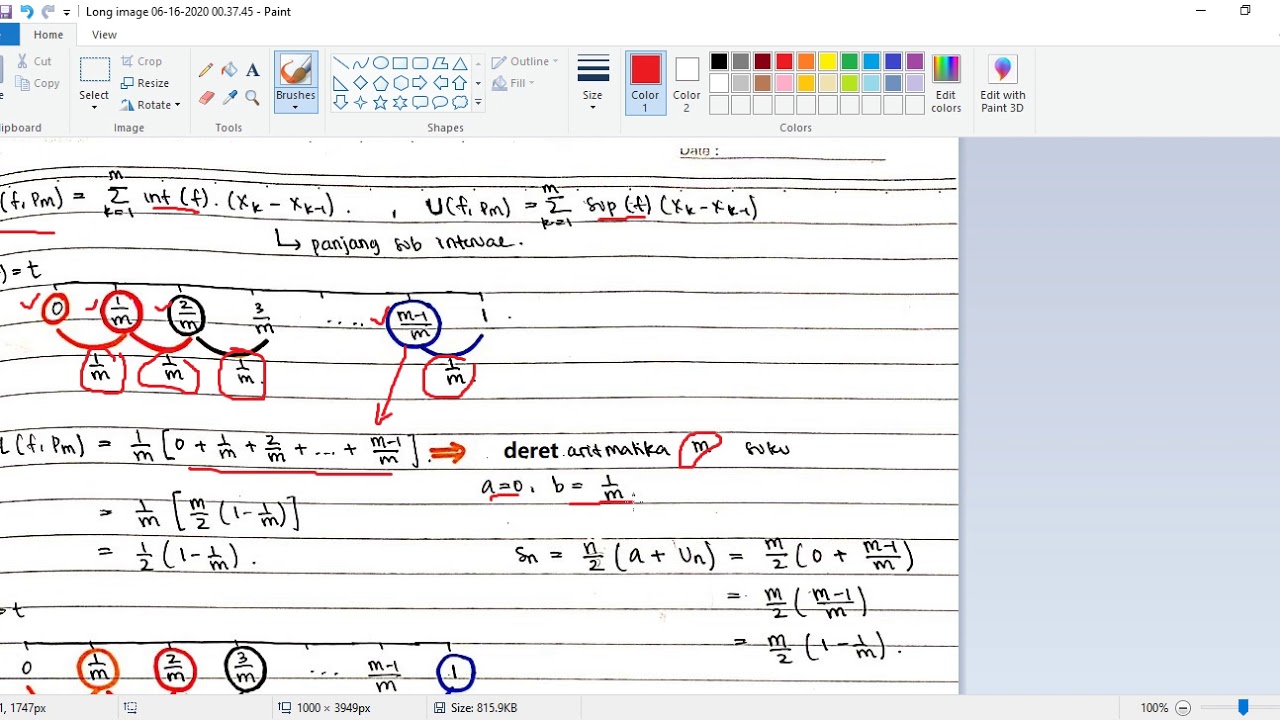 Long image 06-16-2020 00.37.45 - Paint
Home View
Cut
Copy
lipboard
Select
Crop
Resize
Rotate
Image
Tools
Brushes
Shapes
Outline
Fill
Size
Color 1
Color 2
Colors
Edit colors
Edit with Paint 3D
Date :
(f, Pm) = m ∑ k=1 inf (f) . (xk - xk-1) . , U(f, Pm) = m ∑ k=1 sup (f) (xk - xk-1)
↳ panjang sub interval.
) = t
0 1/m 2/m 3/m ..... m-1/m 1 .
1/m 1/m 1/m 1/m
L(f, Pm) = 1/m [0 + 1/m + 2/m + ... + m-1/m] . ⇒ deret aritmatika m suku
a=0, b = 1/m .
= 1/m [m/2 (1 - 1/m)]
= 1/2 (1 - 1/m) .
Sn = n/2 (a + Un) = m/2 (0 + m-1/m)
= m/2 (m-1/m)
= m/2 (1 - 1/m) .
= t
0 1/m 2/m 3/m ... m-1/m 1
1, 1747px
1000 × 3949px
Size: 815.9KB
100%